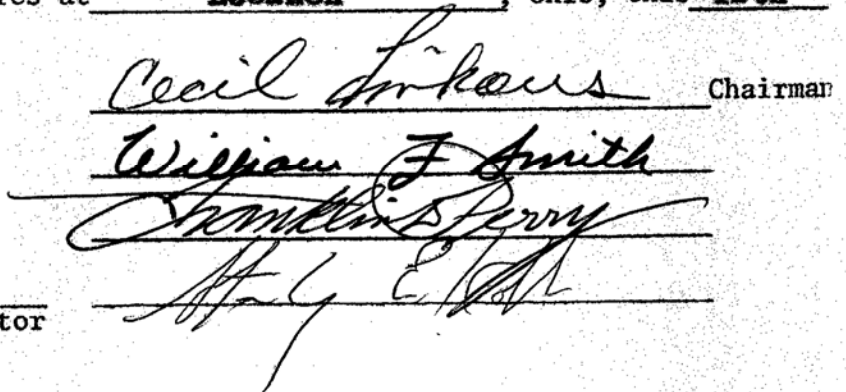 res at Lebanon, Ohio, this
Cecil Linkous Chairman
William F Smith
Franklin S Perry
E.
tor